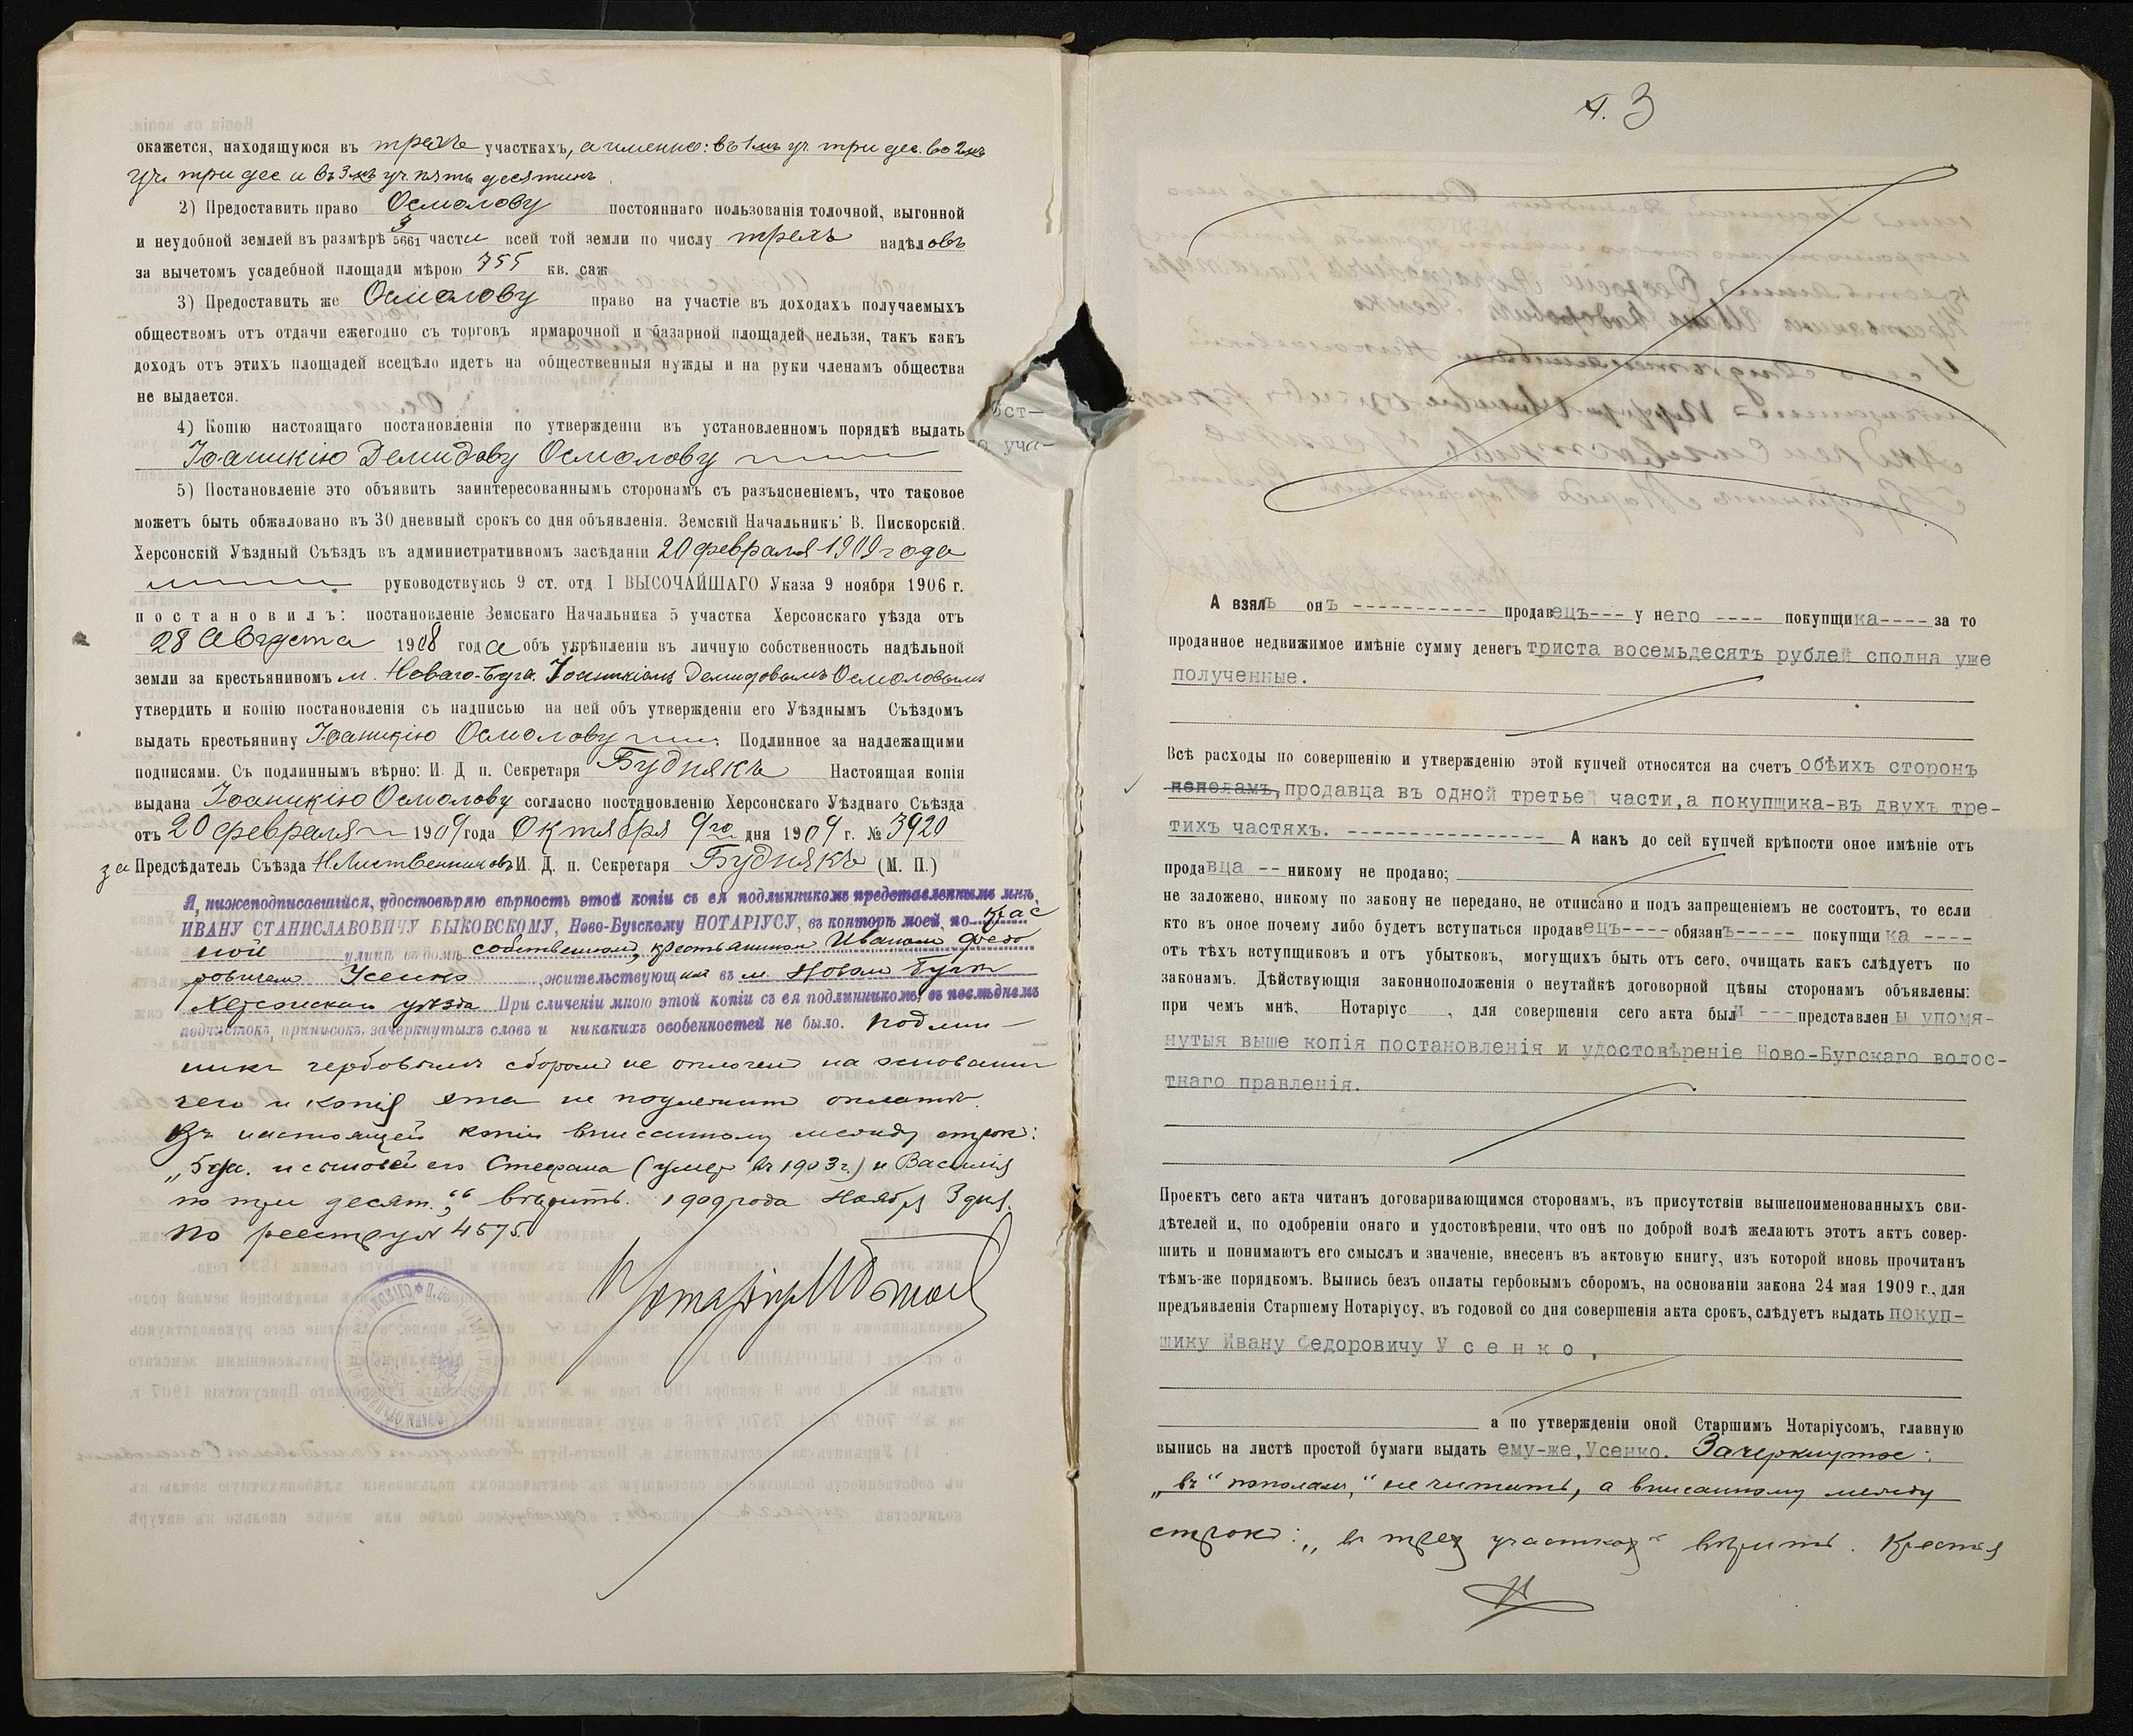 окажется, находящуюся въ трехъ участкахъ, а именно: въ 1мъ уч. три дес. во 2мъ
уч. три дес. и въ 3мъ уч. пять десятинъ.
2) Предоставить право Осмолову постояннаго пользованія толочной, выгонной
и неудобной землей въ размѣрѣ 3/5661 части всей той земли по числу трехъ надѣловъ
за вычетомъ усадебной площади мѣрою 755 кв. саж
3) Предоставить же Осмолову право на участіе въ доходахъ получаемыхъ
обществомъ отъ отдачи ежегодно съ торговъ ярмарочной и базарной площадей нельзя, такъ какъ
доходъ отъ этихъ площадей всецѣло идетъ на общественныя нужды и на руки членамъ общества
не выдается.
4) Копію настоящаго постановленія по утвержденіи въ установленномъ порядкѣ выдать
Іоаникію Демидову Осмолову
5) Постановленіе это объявить заинтересованнымъ сторонамъ съ разъясненіемъ, что таковое
можетъ быть обжаловано въ 30 дневный срокъ со дня объявленія. Земскій Начальникъ В. Пискорскій.
Херсонскій Уѣздный Съѣздъ въ административномъ засѣданіи 20 февраля 1909 года
руководствуясь 9 ст. отд. I ВЫСОЧАЙШАГО Указа 9 ноября 1906 г.
постановилъ: постановленіе Земскаго Начальника 5 участка Херсонскаго уѣзда отъ
28 Августа 1908 года объ укрѣпленіи въ личную собственность надѣльной
земли за крестьяниномъ м. Новаго-Буга Іоаникіемъ Демидовымъ Осмоловымъ
утвердить и копію постановленія съ надписью на ней объ утвержденіи его Уѣзднымъ Съѣздомъ
выдать крестьянину Іоаникію Осмолову Подлинное за надлежащими
подписями. Съ подлиннымъ вѣрно: И. Д. п. Секретаря Буднякъ Настоящая копія
выдана Іоаникію Осмолову согласно постановленію Херсонскаго Уѣзднаго Съѣзда
отъ 20 февраля 1909 года Октября 9го дня 1909 г. № 3920
за Предсѣдатель Съѣзда Н. Листвениковъ И. Д. п. Секретаря Буднякъ (М. П.)
Я, нижеподписавшійся, удостовѣряю вѣрность этой копіи съ ея подлинникомъ представленнымъ мнѣ,
ИВАНУ СТАНИСЛАВОВИЧУ БЫКОВСКОМУ, Ново-Бугскому НОТАРІУСУ, въ конторѣ моей, по Крас
ной улицѣ въ домѣ собственномъ, крестьяниномъ Иваномъ Федо
ровичемъ Усенко, жительствующимъ въ м. Новомъ Бугѣ
Херсонскаго уѣзда При сличеніи мною этой копіи съ ея подлинникомъ, въ послѣднемъ
подчистокъ, приписокъ, зачеркнутыхъ словъ и никакихъ особенностей не было. Подлин-
никъ гербовымъ сборомъ не оплоченъ на основаніи
чего и копія эта не подлежитъ оплатѣ.
Въ настоящей копіи вписанному между строкъ:
„5 дес. и сыновей его Стефана (умер въ 1903 г.) и Василія
по три десят.“, вѣрить. 1909 года Ноября 3 дня.
По реестру № 4575.
Нотаріусъ И Быков
1. 3
ост-
уча-
А взялъ онъ ----------- продавецъ--- у него ---- покупщика---- за то
проданное недвижимое имѣніе сумму денегъ триста восемьдесятъ рублей сполна уже
полученные.
Всѣ расходы по совершенію и утвержденію этой купчей относятся на счетъ обѣихъ сторонъ
пополамъ, продавца въ одной третьей части, а покупщика-въ двухъ тре-
тихъ частяхъ. ---------------- А какъ до сей купчей крѣпости оное имѣніе отъ
продавца -- никому не продано;
не заложено, никому по закону не передано, не отписано и подъ запрещеніемъ не состоитъ, то если
кто въ оное почему либо будетъ вступаться продавецъ---- обязанъ----- покупщика ----
отъ тѣхъ вступщиковъ и отъ убытковъ, могущихъ быть отъ сего, очищать какъ слѣдуетъ по
законамъ. Дѣйствующія законноположенія о неутайкѣ договорной цѣны сторонамъ объявлены:
при чемъ мнѣ, Нотаріус , для совершенія сего акта были --- представлены упомя-
нутыя выше копія постановленія и удостовѣреніе Ново-Бугскаго волос-
тнаго правленія.
Проектъ сего акта читанъ договаривающимся сторонамъ, въ присутствіи вышепоименованныхъ сви-
дѣтелей и, по одобреніи онаго и удостовѣреніи, что онѣ по доброй волѣ желаютъ этотъ актъ совер-
шить и понимаютъ его смыслъ и значеніе, внесенъ въ актовую книгу, изъ которой вновь прочитанъ
тѣмъ-же порядкомъ. Выпись безъ оплаты гербовымъ сборомъ, на основаніи закона 24 мая 1909 г., для
предъявленія Старшему Нотаріусу, въ годовой со дня совершенія акта срокъ, слѣдуетъ выдать покуп-
щику Ивану Федоровичу Усенко,
а по утвержденіи оной Старшимъ Нотаріусомъ, главную
выпись на листѣ простой бумаги выдать ему-же, Усенко. Зачеркнутое:
„въ“ пополамъ,“ не читать, а вписанному между
строкъ: „въ трех участках“ вѣрить. Крестья